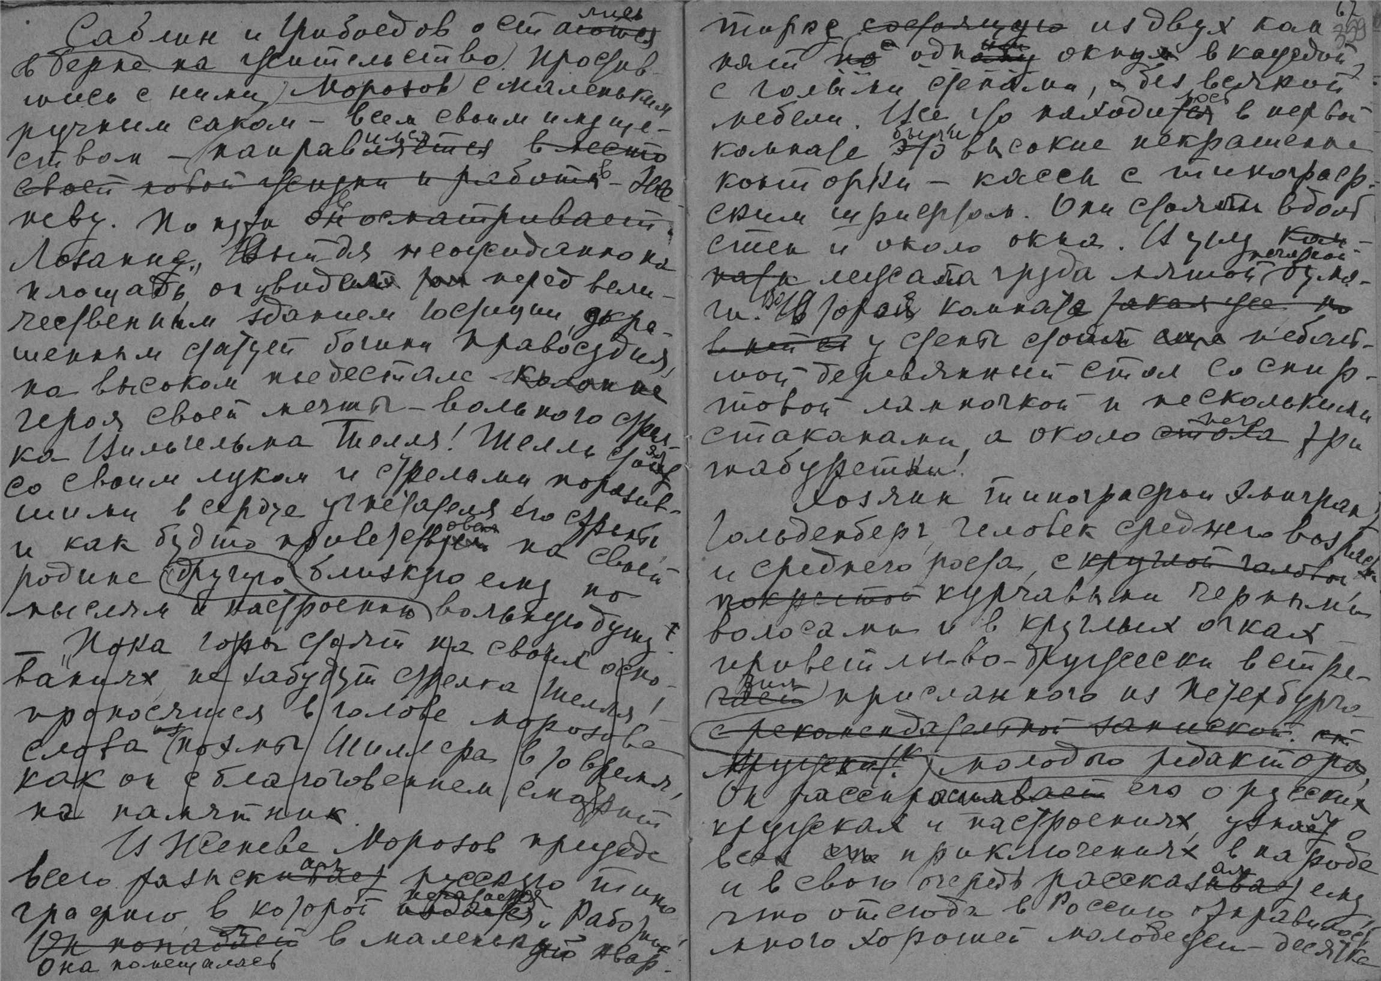 Саблин и Грибоедов остались
в Берне на жительство. Простив-
шись с ними, Морозов с маленьким
ручным саком – всем своим имуще-
ством – направился в место
своей новой жизни и работы – в Же-
неву. По пути он осматривает
Лозанну. Выйдя неожиданно на
площадь, он увидел перед вели-
чественным зданием юстиции, укра-
шенным статуей богини правосудия,
на высоком пьедестале – колонне
героя своей мечты – вольного стрел-
ка Вильгельма Телля! Телль стоял
со своим луком и стрелами поразив-
шими в сердце угнетателя его страны
и как будто приветствовал на своей
родине другую близкую ему по
мыслям и настроению вольную душу.
– "Пока горы стоят на своих осно-
ваниях, не забудут стрелка Телля!"
проносятся в голове Морозова
слова из поэмы Шиллера в то время,
как он с благоговением смотрит
на памятник.
В Женеве Морозов прежде
всего разыскал русскую типо-
графию, в которой печатался "Работник".
Он попадает в маленькую квар-
Она помещалась
62
тирке состоящую из двух ком-
нат по одному окну в каждой,
с голыми стенами, без всякой
мебели. Все что находилось в первой
комнате это были высокие некрашенные
конторки – кассы с типограф-
ским шрифтом. Они стояли вдоль
стен и около окна. В углу ком-
наты лежала груда мятой печатной бума-
ги. Во второй комнате такая же но
в ней у стены стоял еще неболь-
шой деревянный стол со спир-
товой лампочкой и несколькими
стаканами, а около него стола три
табуретки!
Хозяин типографии эмигрант
Гольденберг, человек среднего возраста
и среднего роста, с круглой головой
покрытой курчавыми черными
волосами и в круглых очках
приветливо-дружески встре-
тил присланного из Петербурга
с рекомендательной запиской от
кружка молодого редактора.
Он расспрашивает его о русских
кружках и настроениях, узнает о
всех его приключениях в народе
и в свою очередь рассказал ему
что отсюда в Россию отправилось
много хорошей молодежи – десятка